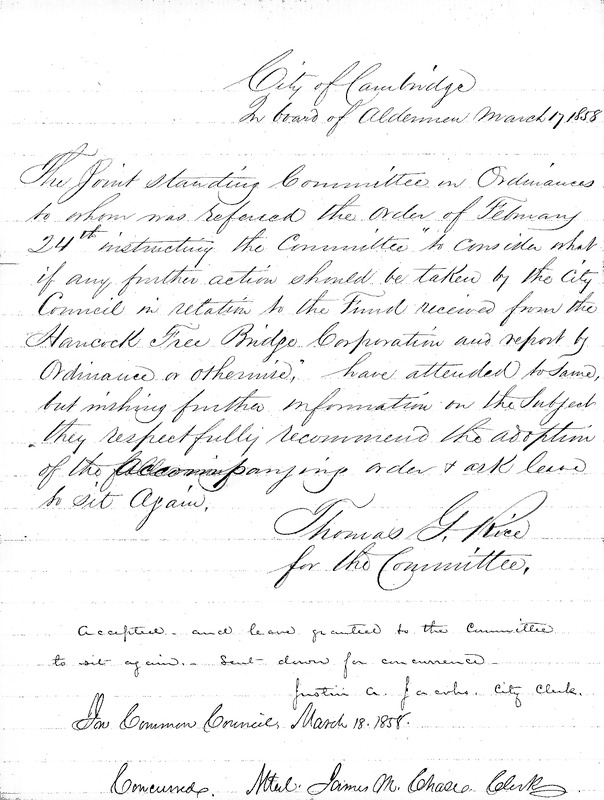 City of Cambridge
In board of Aldermen March 17 1858
The Joint standing Committee on Ordinances
to whom was referred the order of February
24th instructing the Committee "to consider what
if any further action should be taken by the City
Council in relation to the Fund received from the
Hancock Free Bridge Corporation and report by
Ordinance or otherwise," have attended to Same,
but wishing further information on the Subject
they respectfully recommend the adoption
of the accompanying order & ask leave
to sit Again.
Thomas G. Rice
for the Committee.
Accepted - and leave granted to the Committee
to sit again. - Sent down for concurrence -
Justin A. Jacobs. City Clerk.
In Common Council, March 18. 1858.
Concurred. Attest. James M. Chase. Clerk